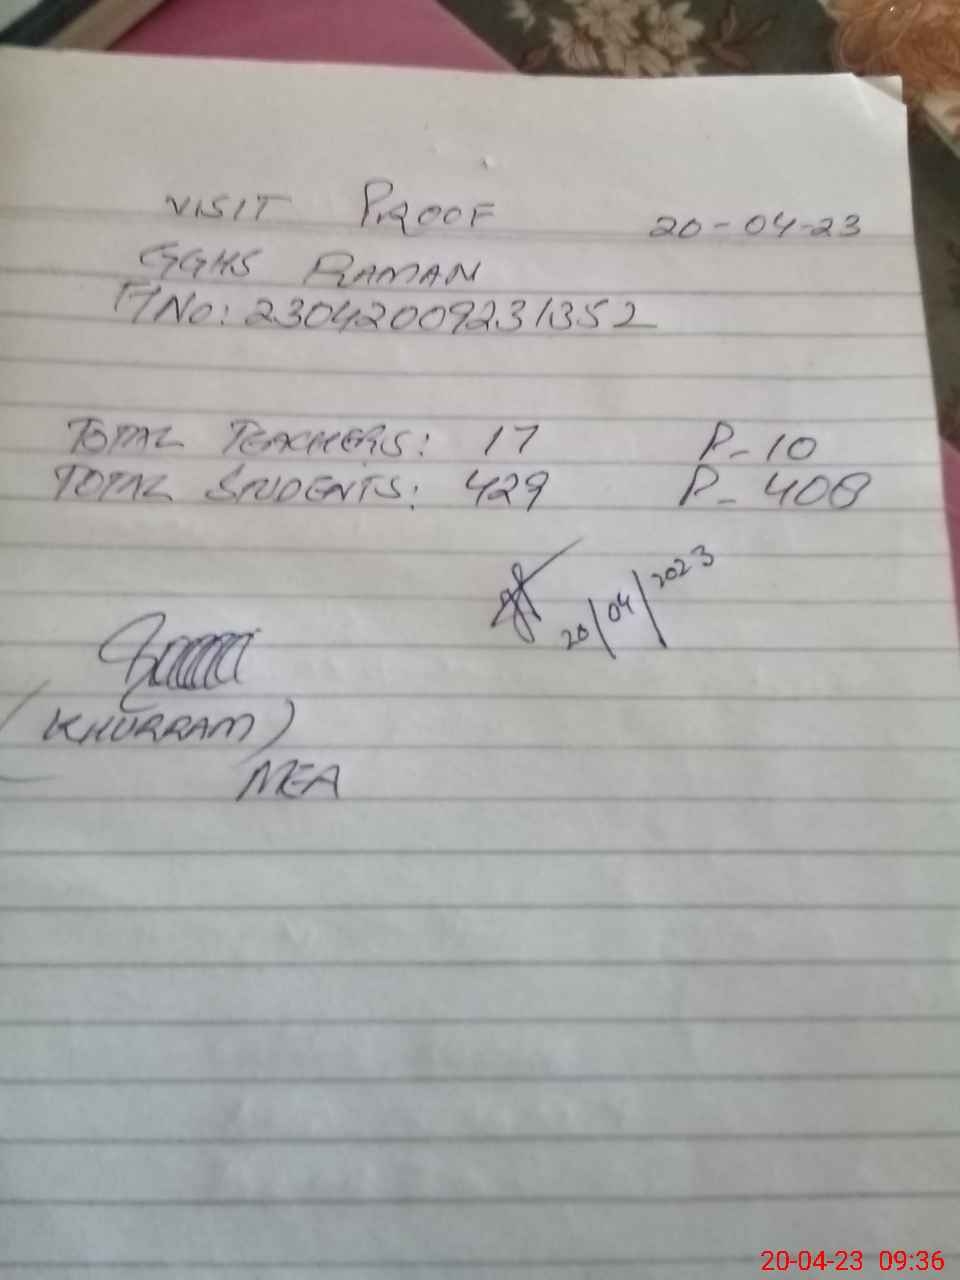 VISIT PROOF 20-04-23
GGHS RAMAN
F/No: 23042009231352
TOTAL TEACHERS: 17 P- 10
TOTAL STUDENTS: 429 P- 408
20/04/2023
(KHURRAM)
MEA
20-04-23 09:36